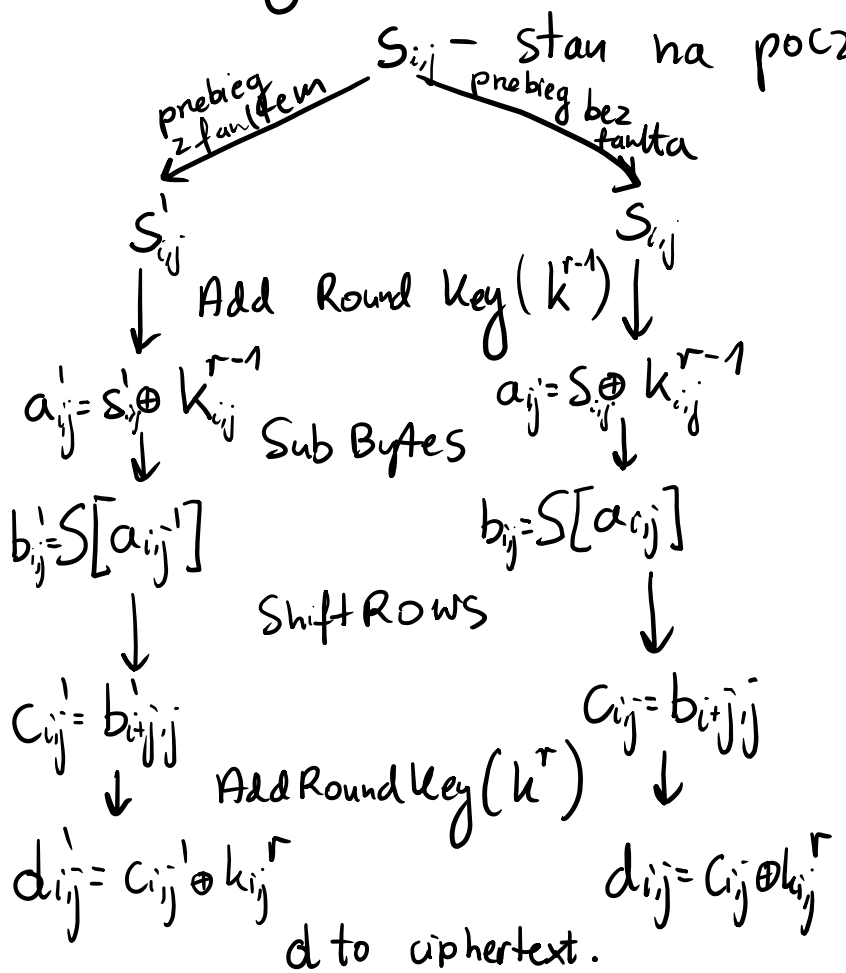 S_{i,j} – stan na pocz
przebieg z faultem
przebieg bez faulta
S'_{i,j} S_{i,j}
Add Round Key (k^{r-1})
a'_{i,j} = s'_{i,j} ⊕ k^{r-1}_{i,j} a_{i,j} = s_{i,j} ⊕ k^{r-1}_{i,j}
Sub Bytes
b'_{i,j} = S[a_{i,j}'] b_{i,j} = S[a_{i,j}]
Shift Rows
c'_{i,j} = b'_{i+j,j} c_{i,j} = b_{i+j,j}
Add Round Key (k^r)
d'_{i,j} = c_{i,j}' ⊕ k_{i,j}^r d_{i,j} = c_{i,j} ⊕ k_{i,j}^r
d to ciphertext.